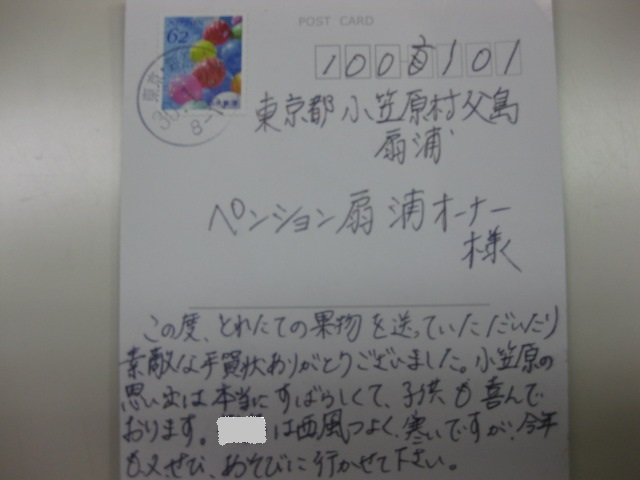 POST CARD
62
東京
30.
8-
100 2101
東京都小笠原村父島
扇浦
ペンション扇浦オーナー
様
この度、とれたての果物を送っていただいたり
素敵な年賀状ありがとうございました。小笠原の
思い出は本当にすばらしくて、子供も喜んで
おります。 は西風つよく、寒いですが、今年
も又ぜひ、あそびに行かせて下さい。